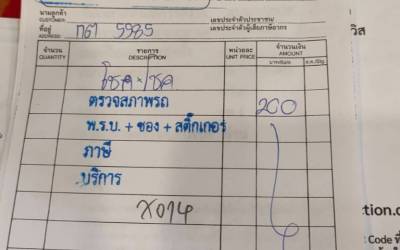 นามลูกค้า CUSTOMER เลขประจำตัวประชาชน/
ที่อยู่ ADDRESS 5985 เลขประจำตัวผู้เสียภาษีอากร
จำนวน QUANTITY รายการ DESCRIPTION หน่วยละ UNIT PRICE จำนวนเงิน AMOUNT
ตรวจสภาพรถ 200
พ.ร.บ. + ซอง + สติ๊กเกอร์
ภาษี
บริการ
ction.c
Code ที่